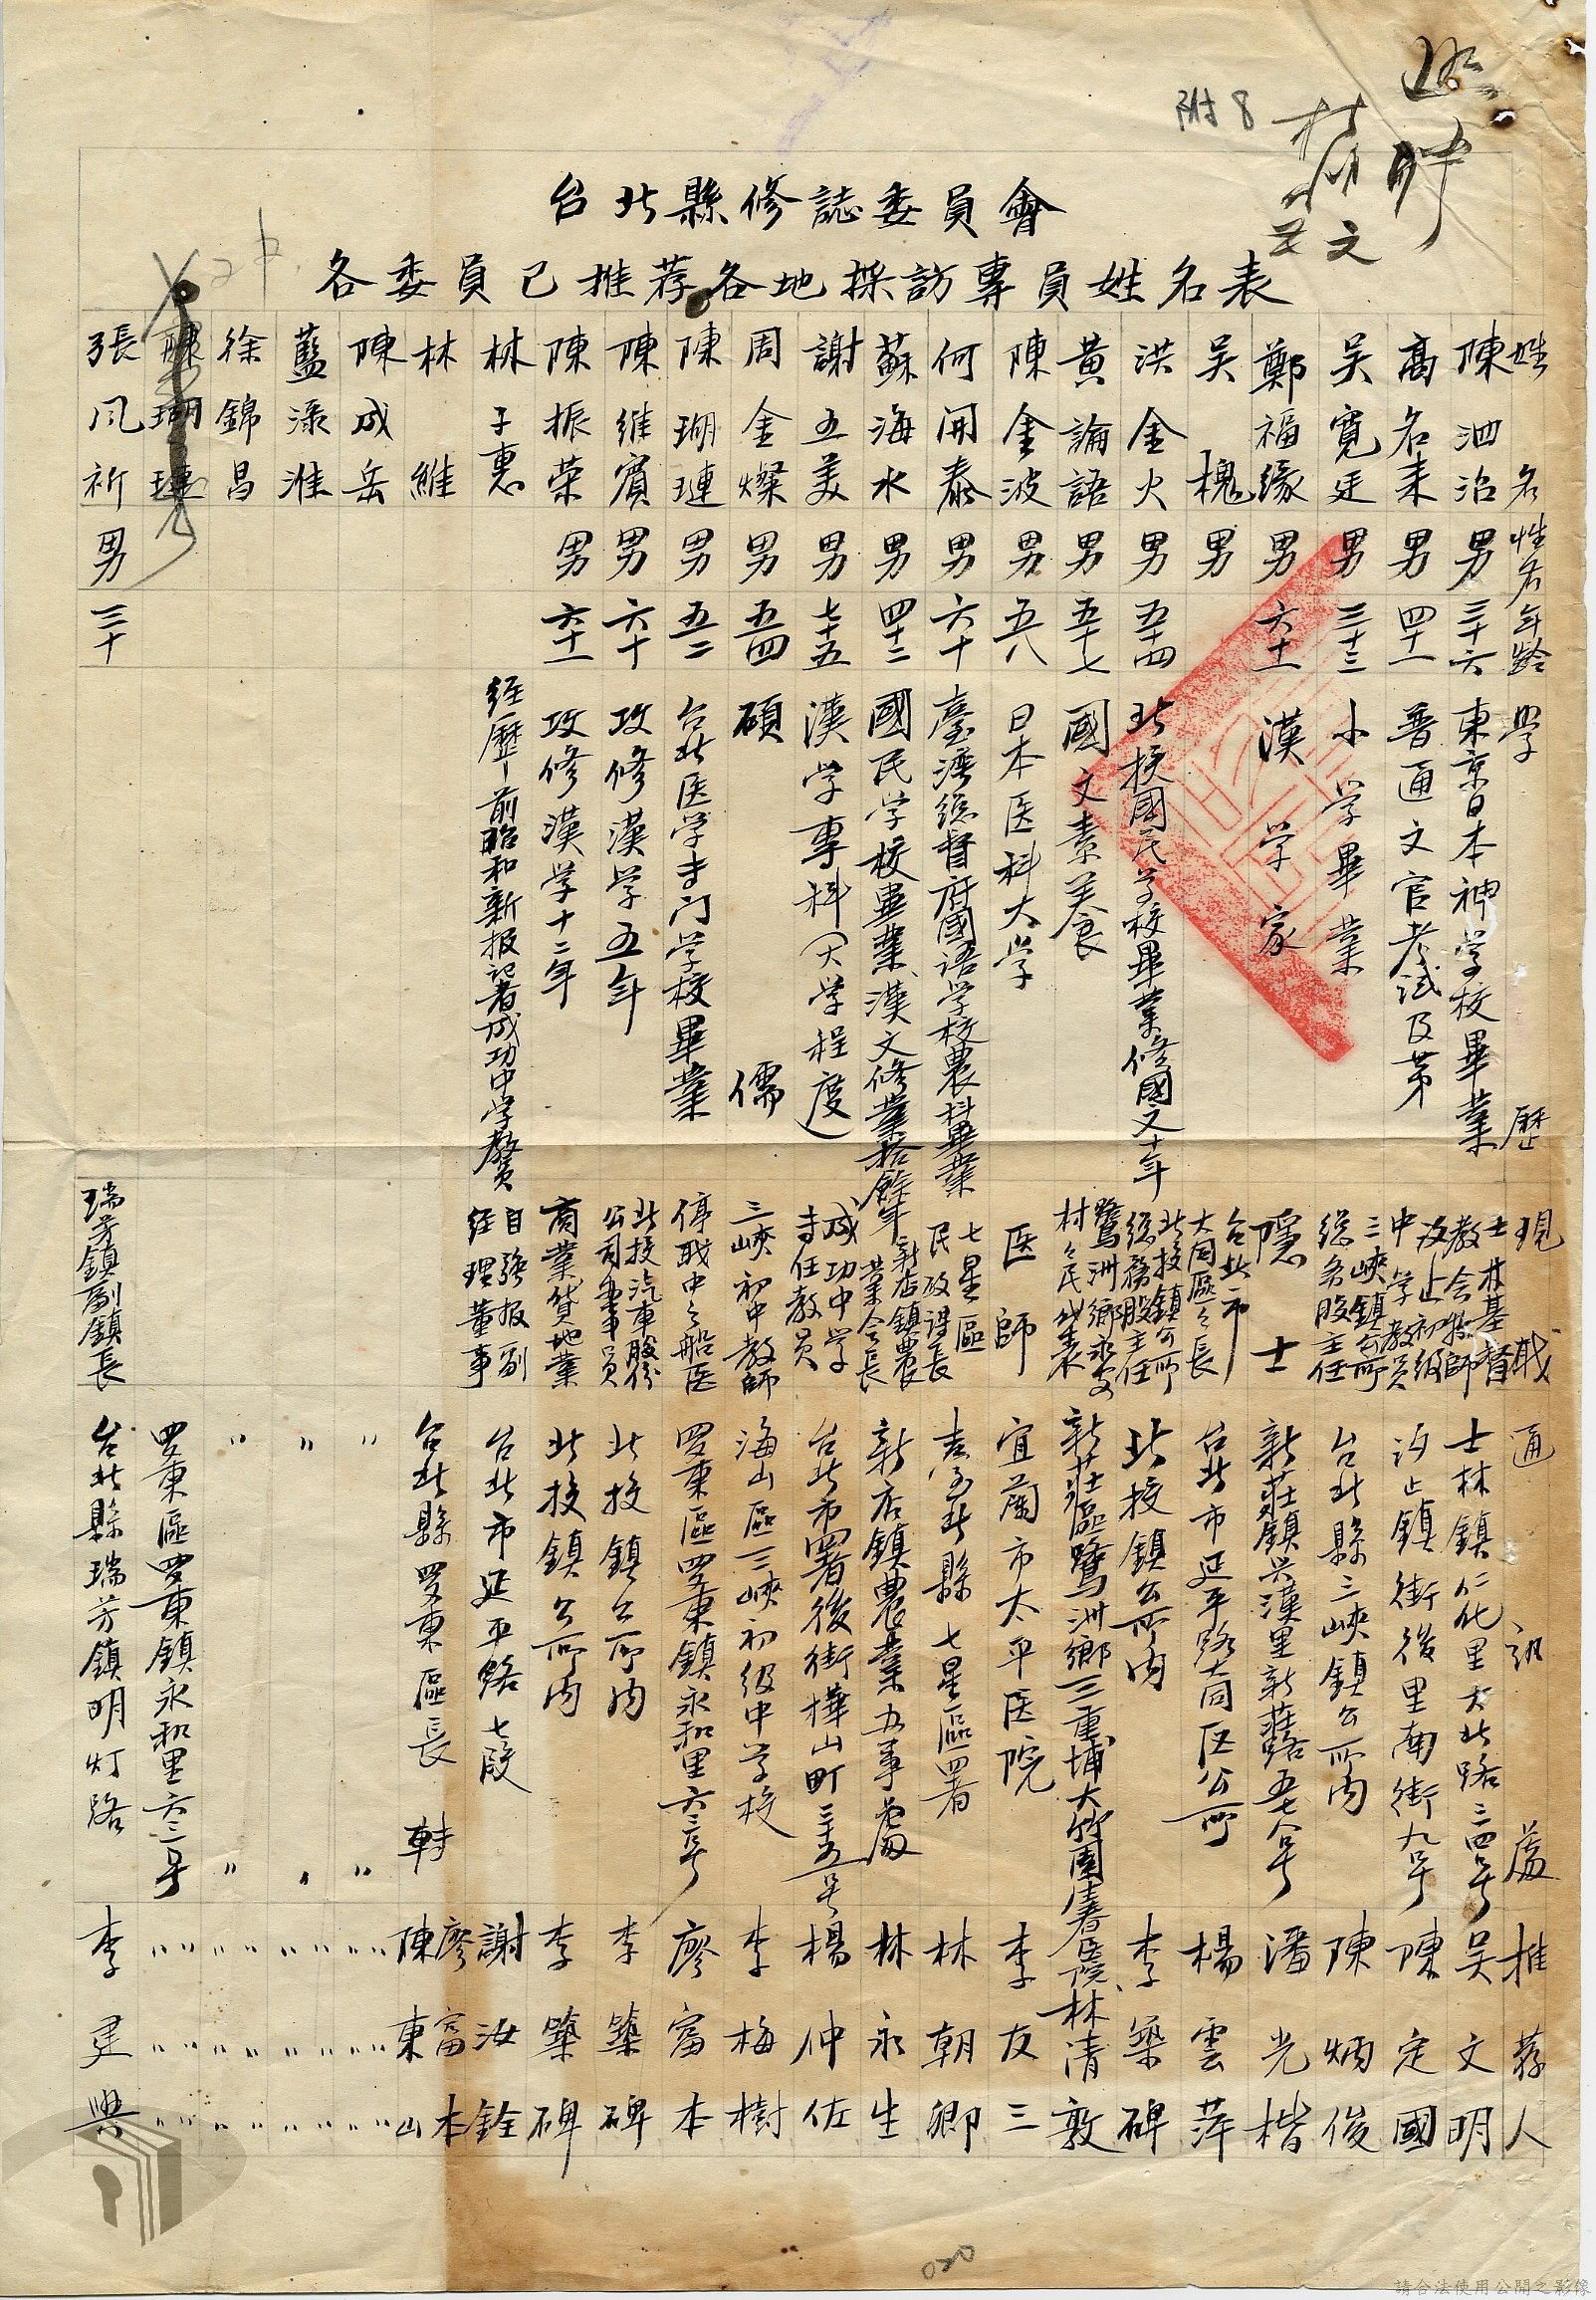 附8
台北縣修誌委員會
各委員已推荐各地採訪專員姓名表
姓名 性別 年齡 學歷 現職 通訊處 推荐人
陳泗治 男 三十六 東京日本神学校畢業 士林基督教会牧師 士林鎮仁化里大北路二四号 吴文明
高名来 男 四十一 普通文官考試及第 汐止初級中学教員 汐止鎮街後里南街九号 陳定國
吴寬廷 男 三十三 小学畢業 三峽鎮公所総务股主任 台北縣三峽鎮公所内 陳炳俊
鄭福緣 男 六十一 漢学家 隱士 新莊鎮兴漢里新莊路五七八号 潘光楷
吴槐 男 台北市大同區々長 台北市延平路大同区公所 楊雲萍
洪金火 男 五十四 北投國民学校畢業修國文十年 北投鎮公所総務股主任 北投鎮公所内 李築碑
黄論語 男 五十七 國文素美良 鷺洲鄉永安村々民代表 新莊區鷺洲鄉三重埔大竹圍春医院 林清敦
陳金波 男 五八 日本医科大学 医師 宜蘭市太平医院 李友三
何開泰 男 六十 臺湾総督府國語学校農科畢業 七星區民政課長 台北縣七星區署 林朝卿
蘇海水 男 四十二 國民学校畢業漢文修業拾餘年 新店鎮農業会長 新店鎮農業办事處 林永生
謝五美 男 七十五 漢学專科(大学程度) 成功中学專任教員 台北市署後街樺山町三五号 楊仲佐
周金燦 男 五四 碩儒 三峽初中教師 海山區三峽初级中学校 李梅樹
陳瑚璉 男 五二 台北医学专门学校畢業 停職中之船医 罗東區罗東鎮永和里六三号 廖富本
陳維賓 男 六十 攻修漢学五年 北投汽車股份公司董事員 北投鎮公所内 李築碑
陳振荣 男 六十一 攻修漢学十二年 商業貸地業 北投鎮公所内 李築碑
林子惠 経歷-前昭和新报記者成功中学教員 自強报副経理董事 台北市延平路七段 謝汝銓
林維 台北縣罗東區長 轉 廖富本 陳東山
陳成岳 〃 〃 〃〃〃
藍淥淮 〃 〃 〃〃〃
徐錦昌 〃 〃 〃〃〃
陳瑚璉 罗東區罗東鎮永和里六三号 〃〃〃
張风祈 男 三十 瑞芳鎮副鎮長 台北縣瑞芳鎮明灯路 李建興
020
請合法使用公開之影像